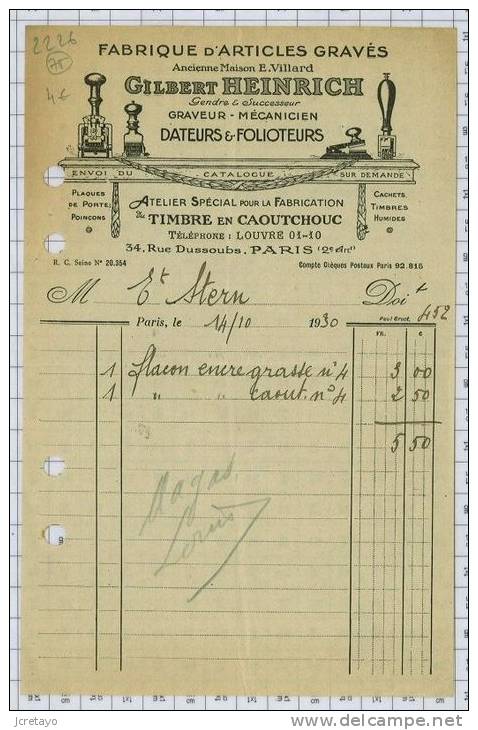 2226
75
4€
FABRIQUE D'ARTICLES GRAVÉS
Ancienne Maison E. Villard
GILBERT HEINRICH
Gendre & Successeur
GRAVEUR - MÉCANICIEN
DATEURS & FOLIOTEURS
ENVOI DU CATALOGUE SUR DEMANDE
PLAQUES DE PORTE; POINÇONS
ATELIER SPÉCIAL POUR LA FABRICATION
du TIMBRE EN CAOUTCHOUC
TÉLÉPHONE : LOUVRE 01-10
CACHETS, TIMBRES HUMIDES
34, Rue Dussoubs, PARIS (2e Arrt)
R. C. Seine N° 20.354
Compte Chèques Postaux Paris 92.815
M Et Stern Doit
Paris, le 14/10 1930
452
FR. C
1 flacon encre grasse n°4 3 00
1 " " caout. n°4 2 50
5 50
Magas.
jcretayo
delcampe.net